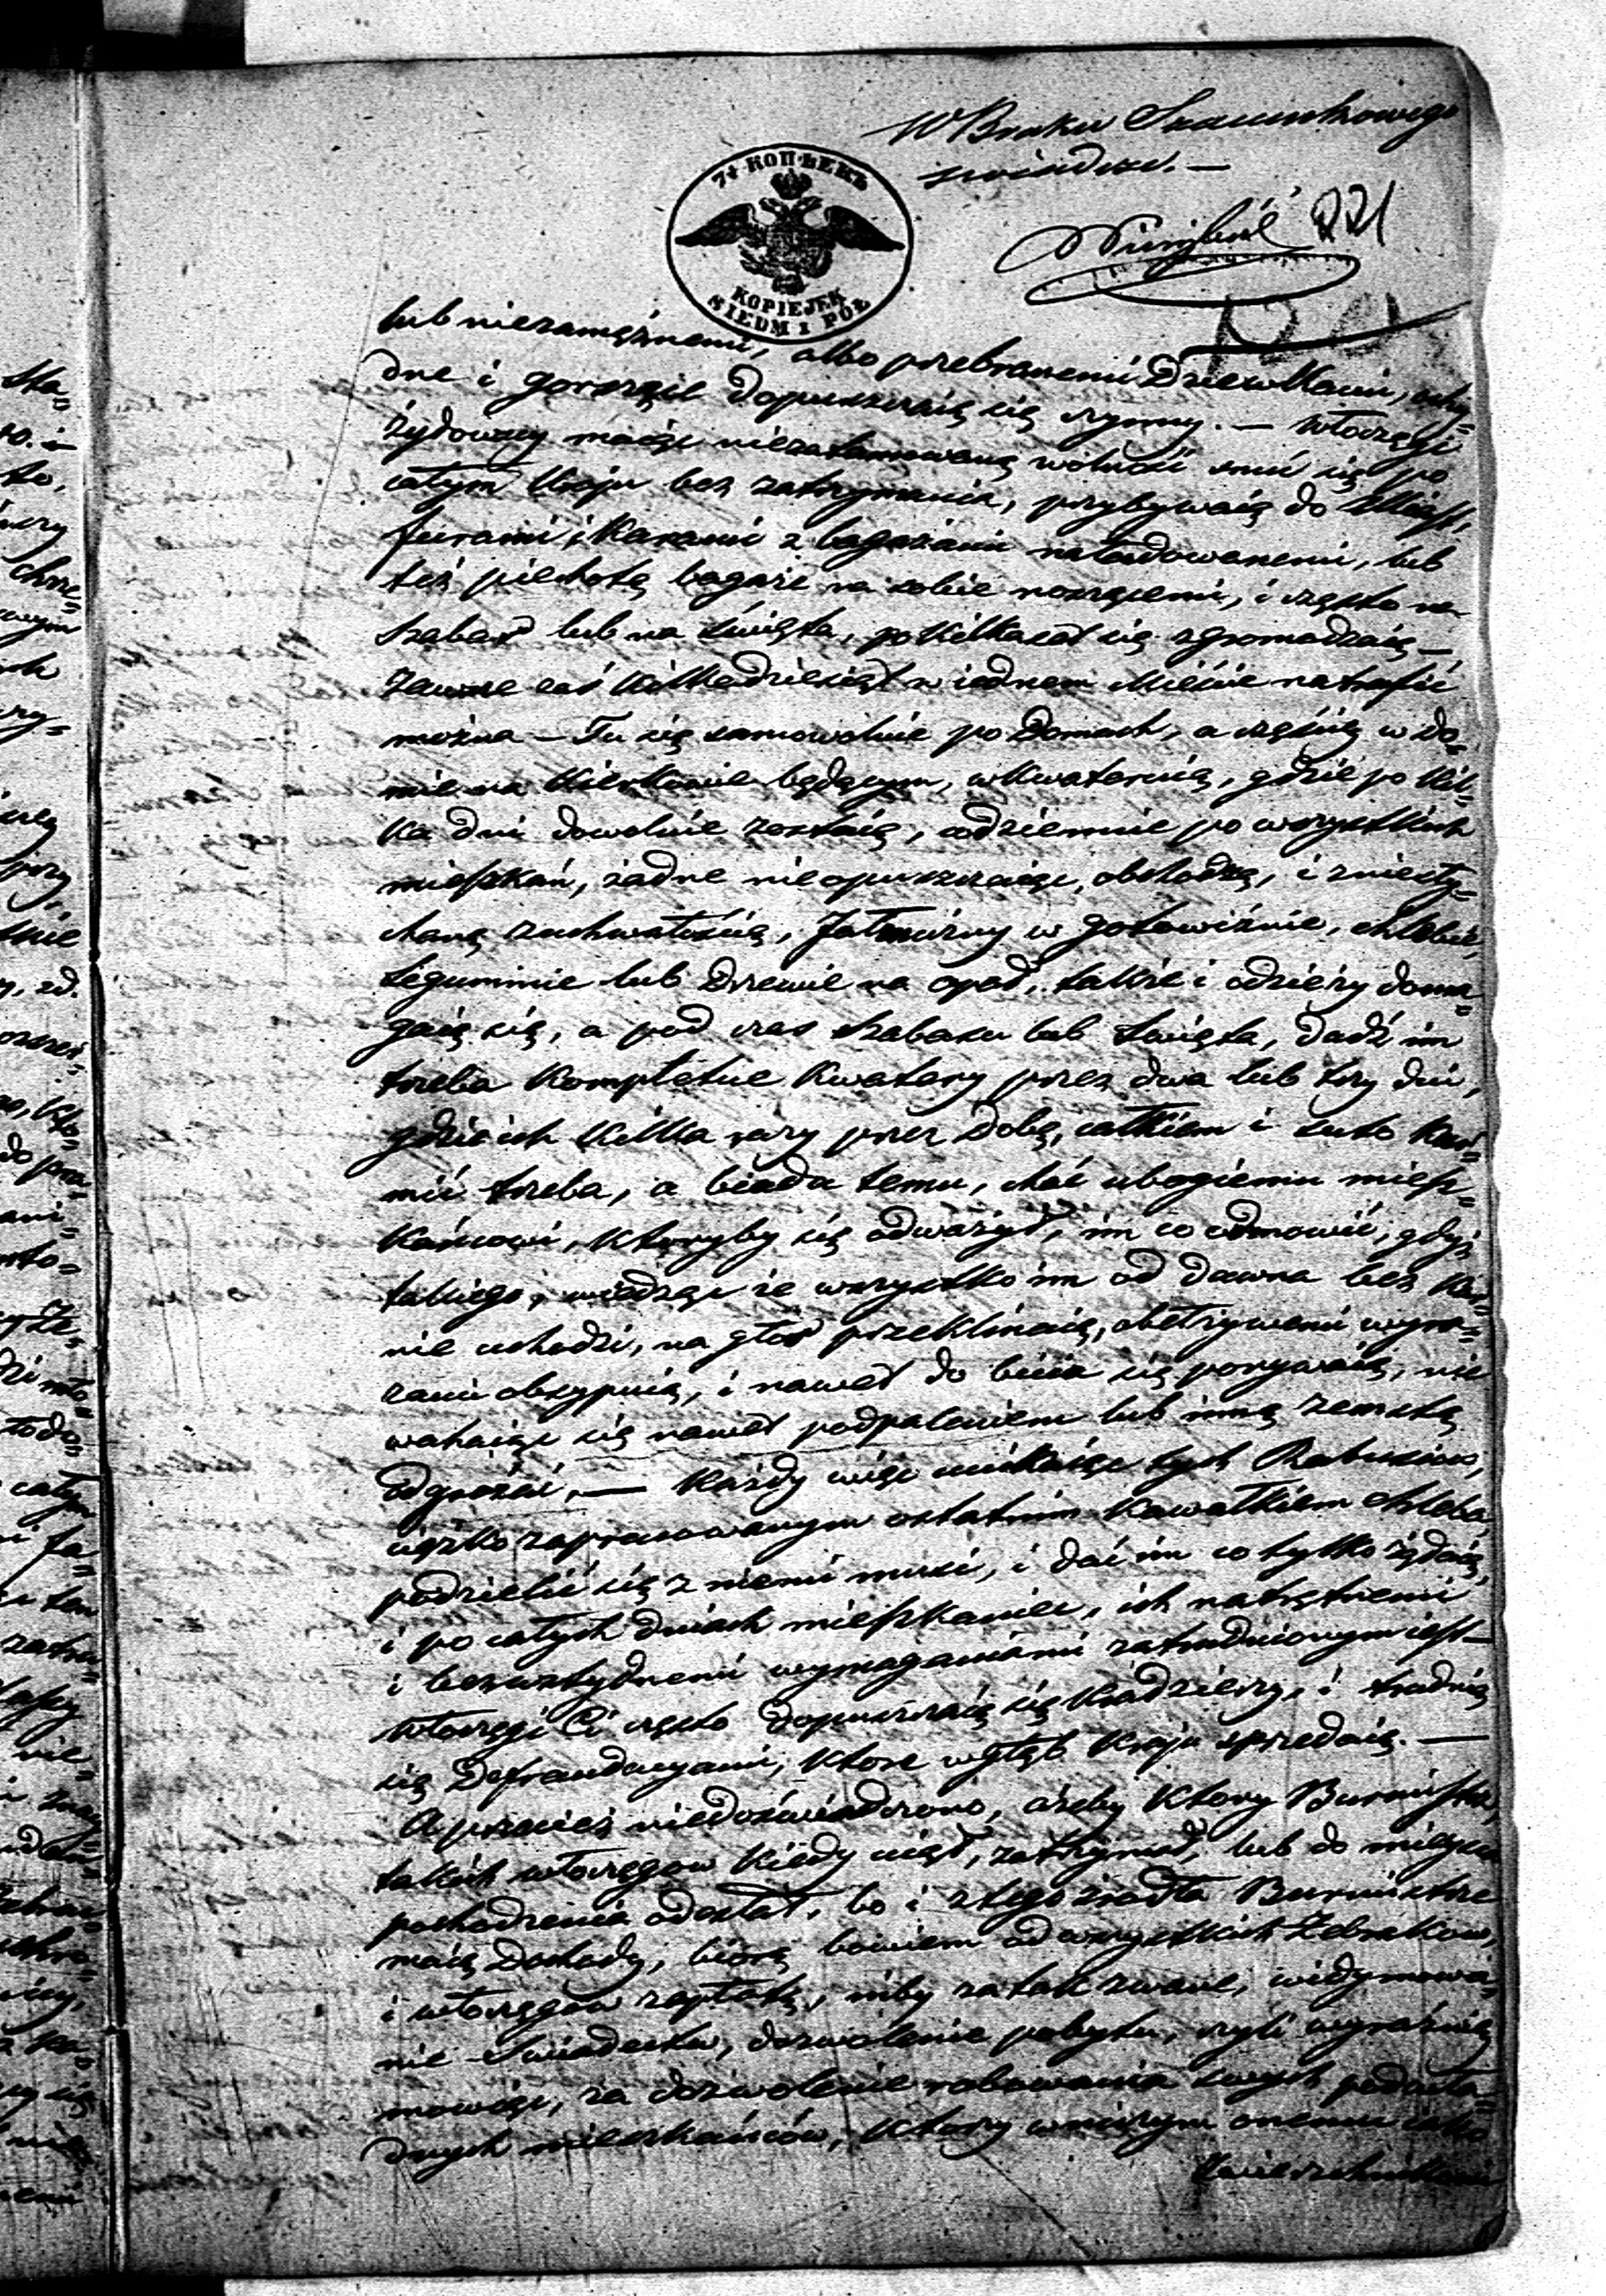 W Braku Szacunkowego
świadczę. —
221
7½ КОПѢЕКЪ
KOPIEJEK
SIEDM I PÓŁ
lub niezamężnemi, albo przebranemi Dziewkami, ochy-
dne i gorszące dopuszczaią się czynny. — Włoczęgi
żydowscy maiąc niezatamowaną wolność snuć się po
całym Kraju bez zatrzymania, przybywaią do Miast,
furami i Karami z bagażami naładowanemi, lub
też piechotą bagaże na sobie noszącemi, i często na
Szabas lub na święta, po Kilkaset się zgromadzaią —
Zawsze zaś Kilkadziesiąt w iednem Mieście natrafić
można — Tu się samowolnie po Domach, a częścią w do-
mie na Kierkowie będącym, wkwateruią, gdzie po Kil-
ka dni dowolnie zostaią, codziennie po wszystkich
mieszkań, żadne nieopuszczaiąc, obchodzą, i zniesły-
chaną zuchwałością, Jałmużny w gotowiźnie, chlebie,
leguminie lub Drzewie na opał, także i odzieży doma-
gaią się, a pod czas szabasu lub święta, dadź im
trzeba Kompletne Kwatery przez dwa lub trzy dni,
gdzie ich Kilka razy przez Dobę, całkiem i suto Kar-
mić trzeba, a biada temu, choć ubogiemu miesz-
kańcowi, Któryby się odważył, im co odmowić, gdyż
takiego, wiedząc że wszystko im od dawna bez Kar-
nie uchodzi, na głos przeklinaią, obelżywemi wyra-
zami obsypuią, i nawet do bicia się porywaią, nie
wahaiąc się nawet podpaleniem lub inną zemstą
odgrażać, — Każdy więc unikaiąc tych Rabusiow,
ciężko zapracowanym ostatnim Kawałkiem chleba,
podzielić się z niemi musi, i dać im co tylko żądaią,
i po całych dniach mieszkaniec, ich natrętnemi
i bezwstydnemi wymaganiami zatrudnionym iest —
Włoczęgi Ci często dopuszczaią się Kradzieży, i trudnią
się Defraudacyami, Ktore wgłąb Kraju sprzedaią. —
A przecież niedoświadczono, ażeby Ktory Burmistrz,
takich włoczęgow Kiedy uiął, zatrzymał, lub do mieysca
pochodzenia odesłał, bo i z tego źrodła Burmistrze
maią Dochody, biorą bowiem od wszystkich Zebrakow,
i włoczęgow zapłatę, niby za tak zwane, widymowa-
nie Swiadectw, dozwolenie pobytu, czyli wyraźniey
mowiąc, za dozwolenie rabowania swych podwła-
dnych mieszkańców, Ktory wniczym onemu iako
Zwierzchnikowi